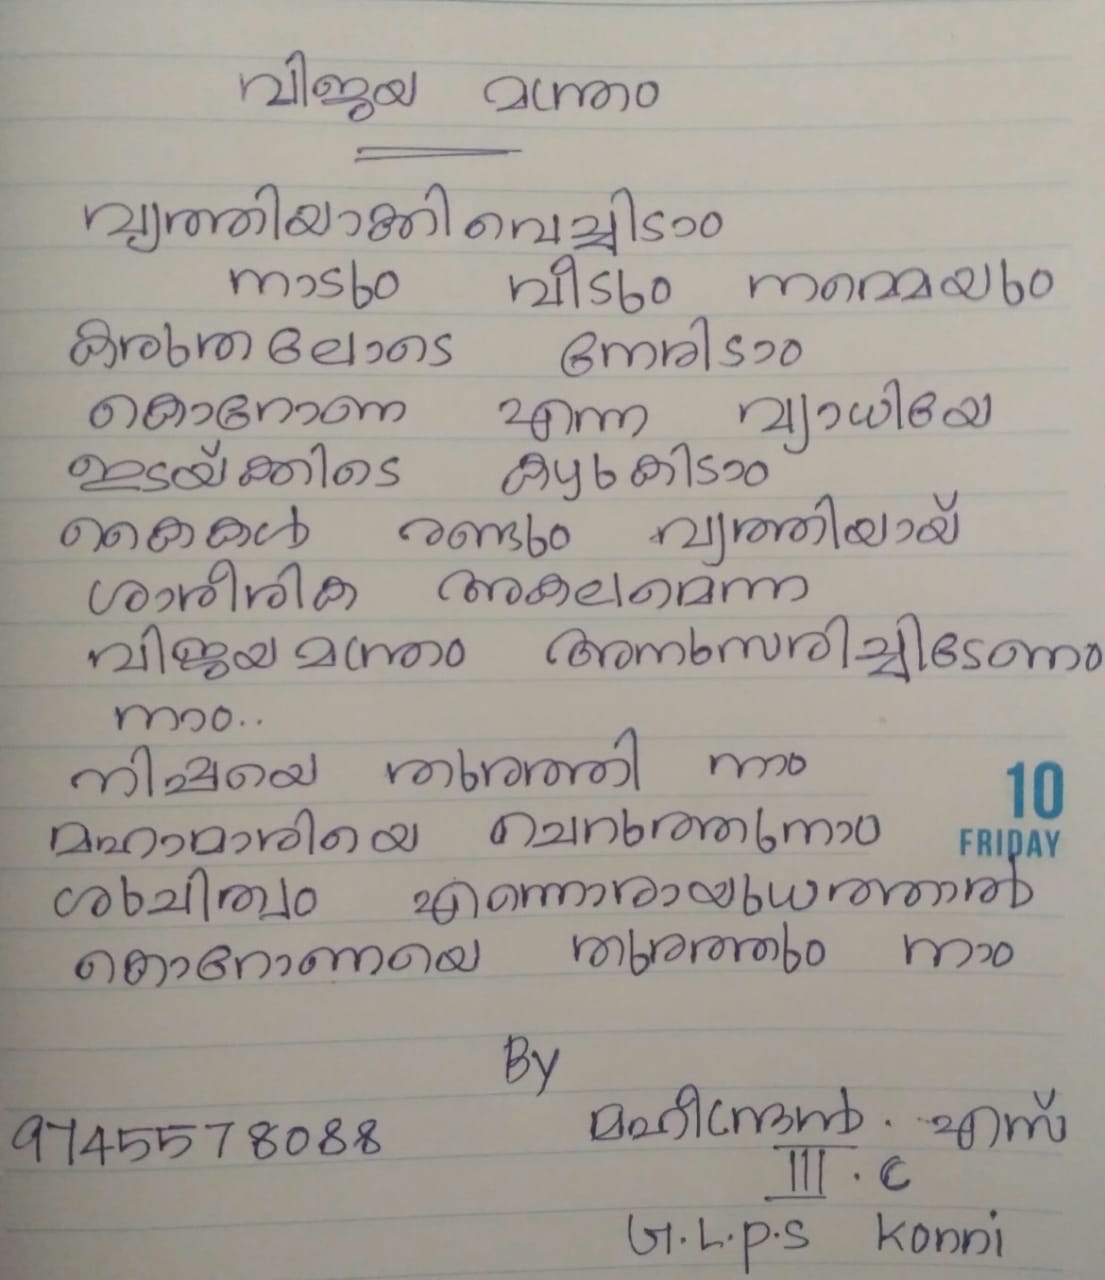 വിജയ മന്ത്രം
വൃത്തിയാക്കി വെച്ചിടാം
നാടും വീടും നമ്മെയും
കരുതലോടെ നേരിടാം
കൊറോണ എന്ന വ്യാധിയേ
ഇടയ്ക്കിടെ കഴുകിടാം
കൈകൾ രണ്ടും വൃത്തിയായ്
ശാരീരിക അകലമെന്ന
വിജയമന്ത്രം അനുസരിച്ചിടേണം
നാം..
നിപ്പയെ തുരത്തി നാം
മഹാമാരിയെ ചെറുത്തുനാം
ശുചിത്വം എന്നൊരായുധത്താൽ
കൊറോണയെ തുരത്തും നാം
10
FRIDAY
By
9745578088
മഹീന്ദ്രൻ. എസ്
III . C
G.L.P.S Konni